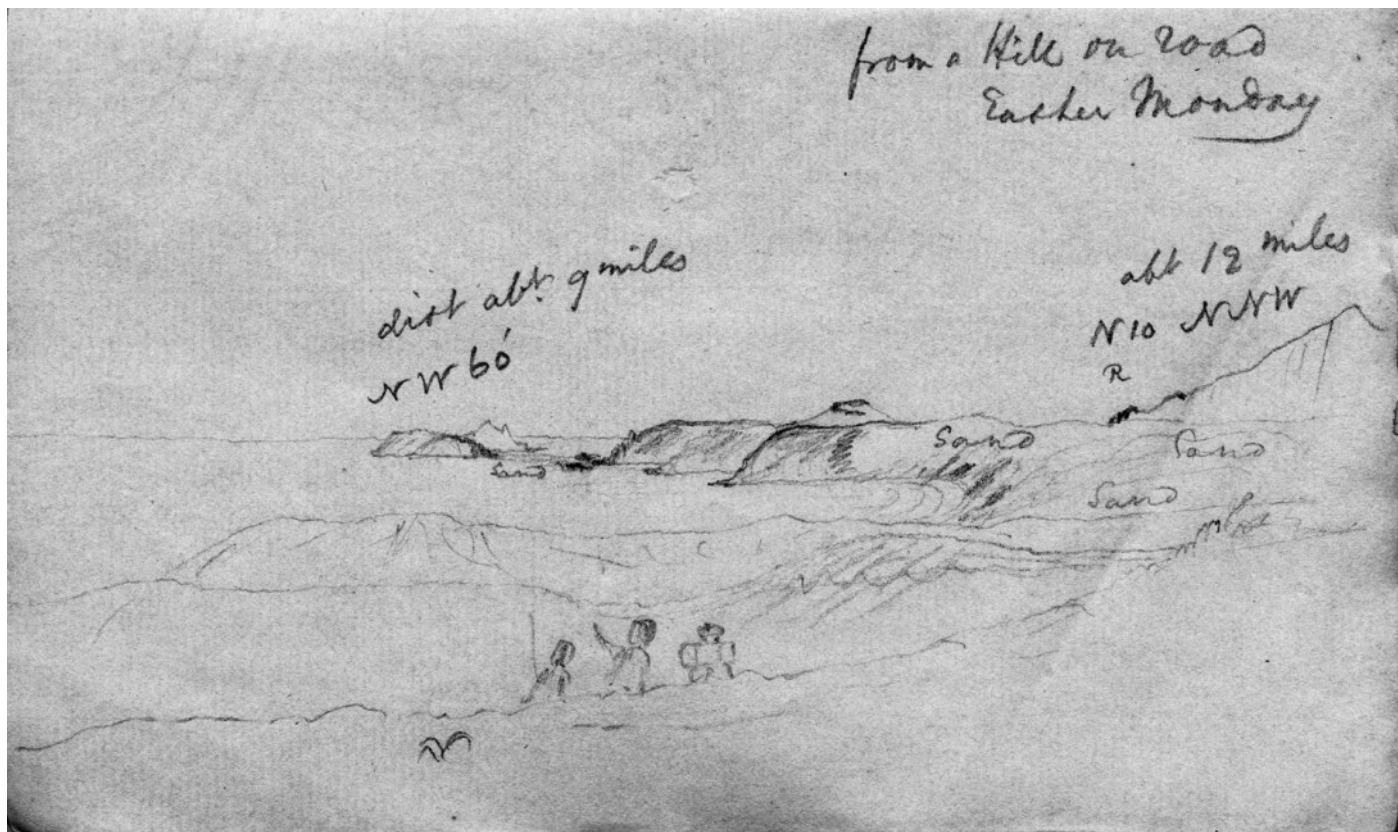 from a Hill on road
Easter Monday
dist abt. 9 miles
NW 60'
abt 12 miles
N10 NNW
R
Sand
Sand
Sand
Sand